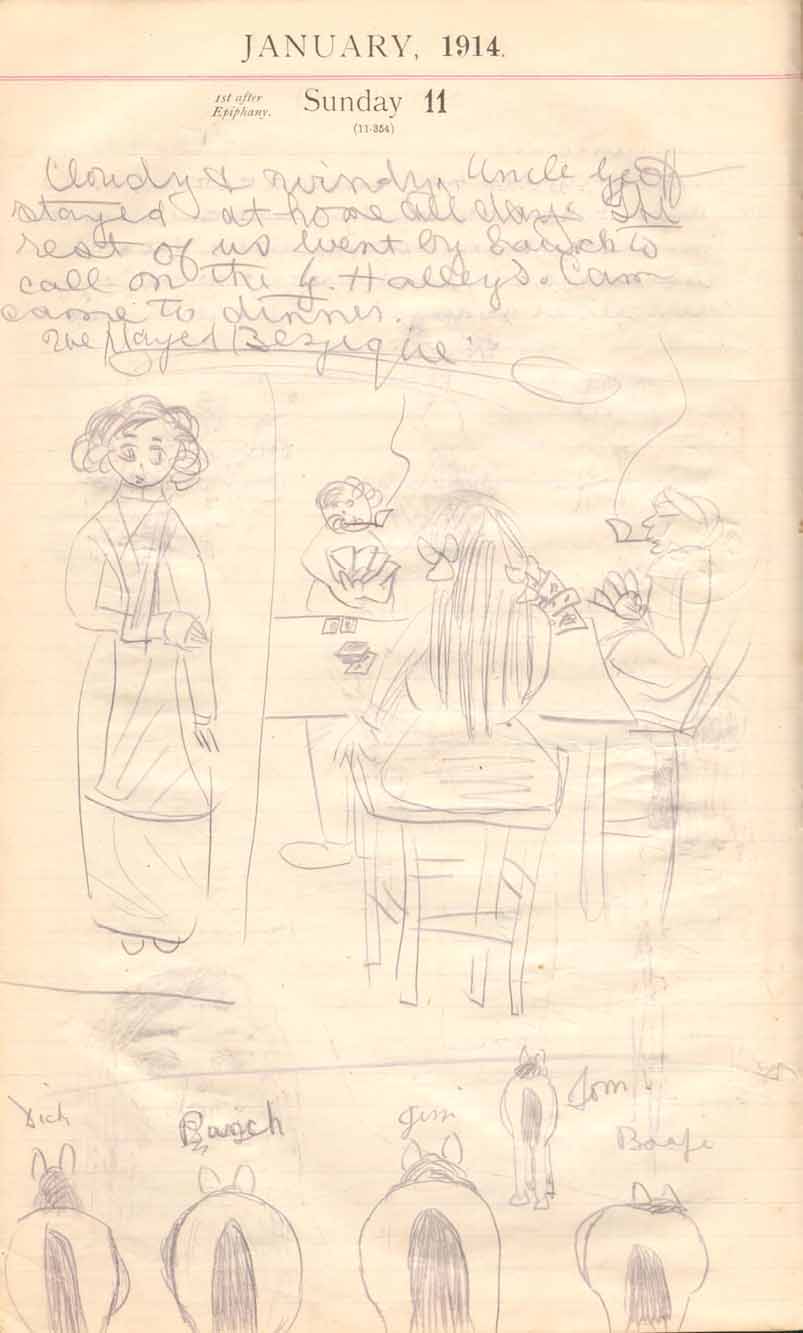 JANUARY, 1914.
1st after
Epiphany.
Sunday 11
(11-354)
Cloudy & windy. Uncle Geoff
stayed at home all day. The
rest of us went by to
call on the G. Halleys. Cam
came to dinner.
We played Bezique
Dick
Jim
Tom